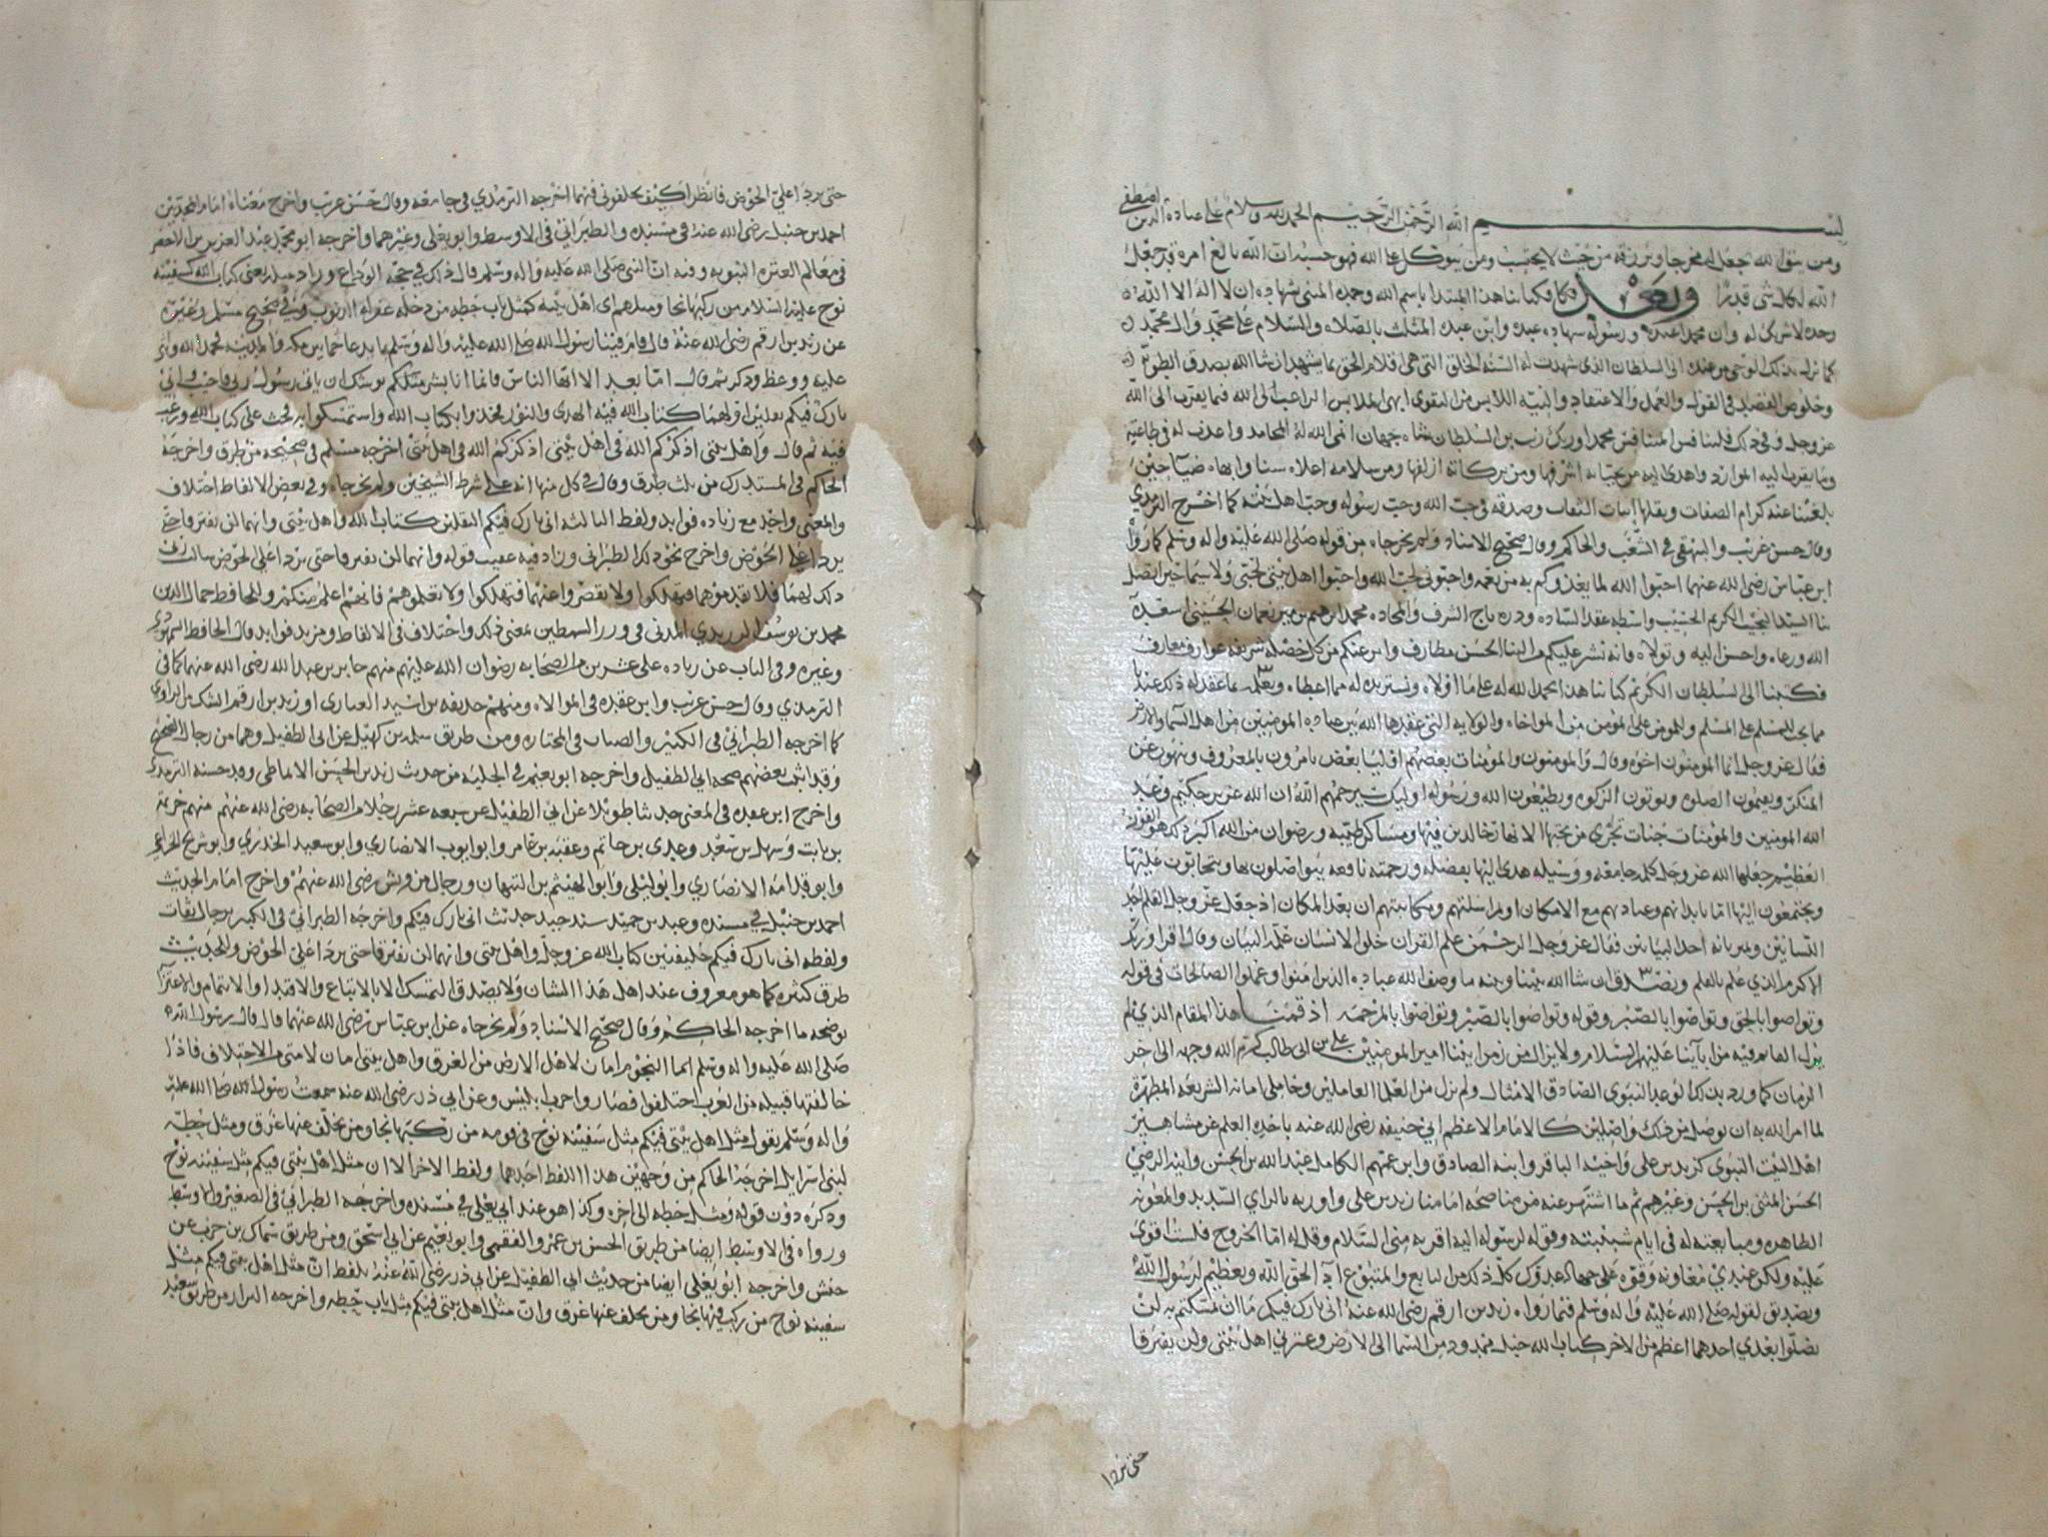 بسم الله الرحمن الرحيم الحمد لله وسلام على عباده الذين اصطفى
ومن يتق الله يجعل له مخرجا ويرزقه من حيث لا يحتسب ومن يتوكل على الله فهو حسبه ان الله بالغ امره قد جعل
الله لكل شى قدرا وبعد فكتابنا هذا المبتدا باسم الله وحمده المثنى بشهاده ان لا اله الا الله
وحده لا شريك له وان محمدا عبده ورسوله شهاده عبده وابن عبده المثلث بالصلاه والسلام على محمد وال محمد
الى السلطان الذي شهدت له السنه الخلق التي هي اقلام الحق بما يشهد ان شا الله بصدق الطويه
وخلوص القصد في القول والعمل والاعتقاد والنيه اللابس من التقوى ابهى الملابس الراغب الى الله فيما يقرب الى الله
عز وجل وفي ذلك فليتنافس المتنافسون محمد اورنك زيب بن السلطان شاه جهان انمى الله له المحامد واعذب له في طاعته
وما يقرب اليه الموارد واهدى اليه من تحياته اشرفها ومن بركاته ازلفها ومن سلامه اعلاه سنا وابهاه ضيا
بلغتنا عنه كرام الصفات ونقلها اثبات الثقات وصدقه في حب الله وحب رسوله وحب اهل بيته كما اخرج الترمذي
وقال حسن غريب والبيهقي في الشعب والحاكم وقال صحيح الاسناد ولم يخرجاه من قوله صلى الله عليه واله وسلم كما رواه
ابن عباس رضي الله عنهما احبوا الله لما يغذوكم به من نعمه واحبوني لحب الله واحبوا اهل بيتي لحبي ولا سيما حين اتصل
بنا السيد النجيب الكريم الحسيب واسطه عقد الساده ودره تاج الشرف والمجاده محمد ابرهيم بن مير نعمان الحسيني اسعده
الله ورعاه واحسن اليه وتولاه فانه نشر عليكم من الثنا الحسن مطارف وابرز عنكم من كل خصله شريفه عوارف ومعارف
فكتبنا الى السلطان الكريم كتابنا هذا نحمد الله له على ما اولاه ونستزيده له مما اعطاه ونعلمه بما عقد له ذلك عندنا
مما يجب للمسلم على المسلم وللمومن على المومن من المواخاه والولايه التي عقدها الله بين عباده المومنين من اهل السما والارض
فقال عز وجل انما المومنون اخوه وقال والمومنون والمومنات بعضهم اوليا بعض يامرون بالمعروف وينهون عن
المنكر ويقيمون الصلوه ويوتون الزكوه ويطيعون الله ورسوله اوليك سيرحمهم الله ان الله عزيز حكيم وعد
الله المومنين والمومنات جنات تجري من تحتها الانهار خالدين فيها ومساكن طيبه ورضوان من الله اكبر ذلك هو الفوز
العظيم جعلها الله عز وجل كلمه جامعه ووسيله هدى اليها بفضله ورحمته نافعه يتواصلون بها ويتحابون عليها
ويجتمعون اليها اما بابدانهم وعبادتهم مع الامكان او مراسلتهم ومكاتبتهم ان بعد المكان اذ جعل عز وجل القلم احد
اللسانين وعبر بانه احد البيانين فقال عز وجل الرحمن علم القران خلق الانسان علمه البيان وقال اقرا وربك
الاكرم الذي علم بالقلم ونصدق ان شا الله بيننا وبينه ما وصف الله عباده الذين امنوا وعملوا الصالحات في قوله
وتواصوا بالحق وتواصوا بالصبر وقوله وتواصوا بالصبر وتواصوا بالمرحمه اذ قمنا هذا المقام الذي لم
يزل القايم فيه من ابآينا عليهم السلام ولا يزال من زمن ابينا امير المومنين علي بن ابي طالب كرم الله وجهه الى اخر
الزمان كما ورد بذلك الوعد النبوي الصادق الامثال ولم يزل من العلما العاملين وحاملي امانه الشريعه المطهره
لما امر الله به ان يوصل من ذلك واصلين كالامام الاعظم ابي حنيفه رضي الله عنه باخذه العلم عن مشاهير
اهل البيت النبوي كزيد بن علي واخيه الباقر وابنه الصادق وابن عمهم الكامل عبد الله بن الحسن وابيه الرضي
الحسن المثنى بن الحسن وغيرهم ثم ما اشتهر عنه من مناصحه امامنا زيد بن علي وازره بالراي السديد والمعونه
الظاهره ومبايعته له في ايام شبيبته وقوله لرسوله اليه اقره مني السلام وقل له اما الخروج فلست اقوى
عليه ولكن عندي معاونه وقوه على جهاد عدوك كل ذلك من التابع والمتبوع ادآ لحق الله وتعظيم لرسول الله
وتصديق لقوله صلى الله عليه واله وسلم فيما رواه زيد بن ارقم رضي الله عنه اني تارك فيكم ما ان تمسكتم به لن
تضلوا بعدي احدهما اعظم من الاخر كتاب الله حبل ممدود من السما الى الارض وعترتي اهل بيتي ولن يفترقا
حتى يردا
حتى يردا علي الحوض فانظروا كيف تخلفوني فيهما اخرجه الترمذي في جامعه وقال حسن غريب واخرج معناه امام المحدثين
احمد بن حنبل رضي الله عنه في مسنده والطبراني في الاوسط وابو يعلى وغيرهما واخرجه ابو محمد عبد العزيز بن الاخضر
في معالم العتره النبويه وفيه ان النبي صلى الله عليه واله وسلم قال ذلك في حجه الوداع وزاد مثله يعني كتاب الله كسفينه
نوح عليه السلام من ركبها نجا ومثلهم اي اهل بيته كمثل باب حطه من دخله غفرت له الذنوب وفي صحيح مسلم وغيره
عن زيد بن ارقم رضي الله عنه قال قام فينا رسول الله صلى الله عليه واله وسلم بما يدعا خما بين مكه والمدينه فحمد الله واثنى
عليه ووعظ وذكر ثم قال اما بعد الا ايها الناس فانما انا بشر مثلكم يوشك ان ياتي رسول ربي فاجيب واني
تارك فيكم ثقلين اولهما كتاب الله فيه الهدى والنور فخذوا بكتاب الله واستمسكوا به فحث على كتاب الله ورغب
فيه ثم قال واهل بيتي اذكركم الله في اهل بيتي اذكركم الله في اهل بيتي اخرجه مسلم في صحيحه من طرق واخرجه
الحاكم في المستدرك من ثلث طرق وقال في كل منها انه على شرط الشيخين ولم يخرجاه وفي بعض الالفاظ اختلاف
والمعنى واحد مع زياده فوايد ولفظ الثالثه اني تارك فيكم الثقلين كتاب الله واهل بيتي وانهما لن يفترقا حتى
يردا علي الحوض واخرج نحو ذلك الطبراني وزاد فيه عقيب قوله وانهما لن يفترقا حتى يردا علي الحوض سالت ربي
ذلك لهما فلا تقدموهما فتهلكوا ولا تقصروا عنهما فتهلكوا ولا تعلموهم فانهم اعلم منكم والحافظ جمال الدين
محمد بن يوسف الزرندي المدني في درر السمطين بمعنى ذلك واختلاف في الالفاظ ومزيد فوايد قال الحافظ السمهودي
وغيره وفي الباب عن زياده على عشرين من الصحابه رضوان الله عليهم منهم جابر بن عبد الله رضي الله عنهما كما في
الترمذي وقال حسن غريب وابن عقده في الموالاه ومنهم حذيفه بن اسيد الغفاري او زيد بن ارقم الشك من الراوي
كما اخرجه الطبراني في الكبير والضيا في المختاره ومن طريق سلمه بن كهيل عن ابي الطفيل وهما من رجال الصحيح
وقد اثبت بعضهم صحبه ابي الطفيل واخرجه ابو نعيم في الحليه من حديث زيد بن الحسن الانماطي وقد حسنه الترمذي
واخرج ابن عقده في المعنى حديثا طويلا عن ابي الطفيل عن سبعه عشر رجلا من الصحابه رضي الله عنهم منهم خزيمه
بن ثابت وسهل بن سعد وعدي بن حاتم وعقبه بن عامر وابو ايوب الانصاري وابو سعيد الخدري وابو شريح الخزاعي
وابو قدامه الانصاري وابو ليلى وابو الهيثم بن التيهان ورجال من قريش رضي الله عنهم واخرج امام الحديث
احمد بن حنبل في مسنده وعبد بن حميد بسند جيد حديث اني تارك فيكم واخرجه الطبراني في الكبير برجال ثقات
ولفظه اني تارك فيكم خليفتين كتاب الله عز وجل واهل بيتي وانهما لن يفترقا حتى يردا علي الحوض وللحديث
طرق كثيره كما هو معروف عند اهل هذا الشان ولا يصدق التمسك الا بالاتباع والاقتدا والايتمام والاعتزا
يوضحه ما اخرجه الحاكم وقال صحيح الاسناد ولم يخرجاه عن ابن عباس رضي الله عنهما قال قال رسول الله
صلى الله عليه واله وسلم انما النجوم امان لاهل الارض من الغرق واهل بيتي امان لامتي من الاختلاف فاذا
خالفتها قبيله من العرب اختلفوا فصاروا حزب ابليس وعن ابي ذر رضي الله عنه سمعت رسول الله صلى الله عليه
واله وسلم يقول مثل اهل بيتي فيكم مثل سفينه نوح في قومه من ركبها نجا ومن تخلف عنها غرق ومثل حطه
لبني اسرايل اخرجه الحاكم من وجهين هذا اللفظ احدهما ولفظ الاخر الا ان مثل اهل بيتي فيكم مثل سفينه نوح
وذكره دون قوله ومثل حطه الى اخره وكذا هو عند ابي يعلى في مسنده واخرجه الطبراني في الصغير والاوسط
ورواه في الاوسط ايضا من طريق الحسن بن عمرو الفقيمي وابو نعيم عن ابي اسحق ومن طريق سماك بن حرب عن
حنش واخرجه ابو يعلى ايضا من حديث ابي الطفيل عن ابي ذر رضي الله عنه بلفظ ان مثل اهل بيتي فيكم مثل
سفينه نوح من ركب فيها نجا ومن تخلف عنها غرق وان مثل اهل بيتي فيكم مثل باب حطه واخرجه البزار من طريق سعيد